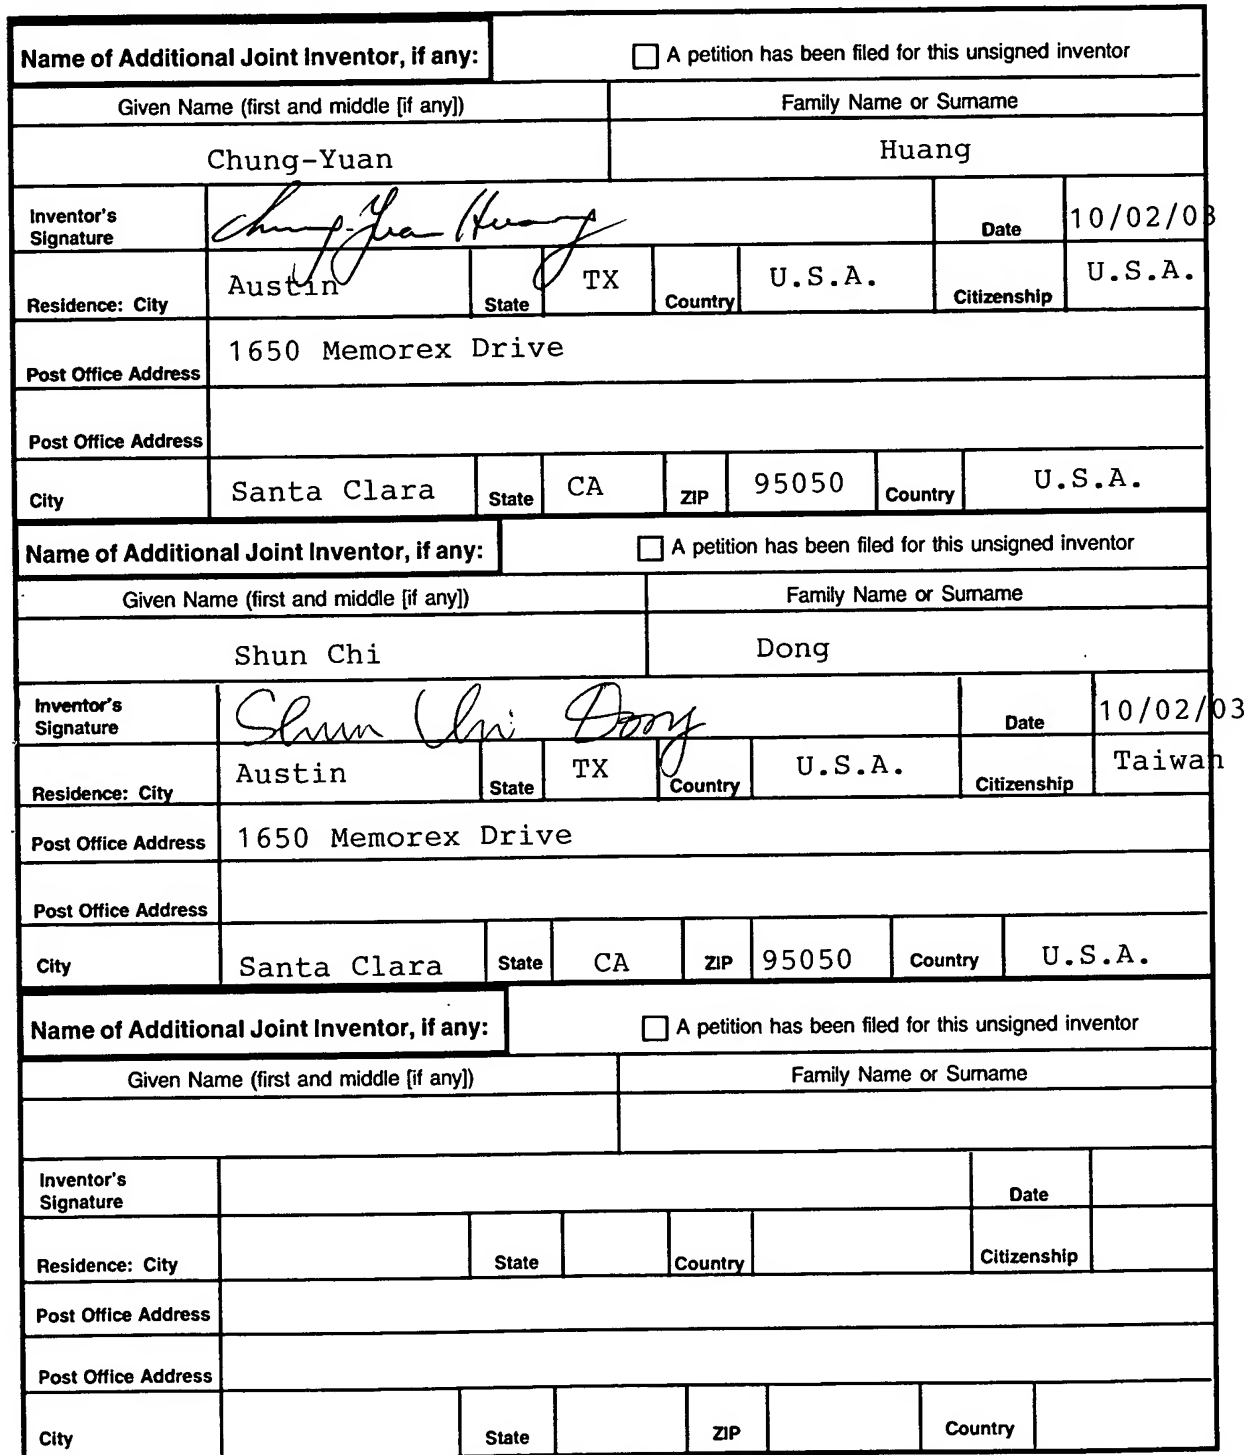 Name of Additional Joint Inventor, if any: A petition has been filed for this unsigned inventor
Given Name (first and middle [if any]) Family Name or Surname
Chung-Yuan Huang
Inventor's Signature Chung-Yuan Huang Date 10/02/03
Residence: City Austin State TX Country U.S.A. Citizenship U.S.A.
Post Office Address 1650 Memorex Drive
Post Office Address
City Santa Clara State CA ZIP 95050 Country U.S.A.
Name of Additional Joint Inventor, if any: A petition has been filed for this unsigned inventor
Given Name (first and middle [if any]) Family Name or Surname
Shun Chi Dong
Inventor's Signature Shun Chi Dong Date 10/02/03
Residence: City Austin State TX Country U.S.A. Citizenship Taiwan
Post Office Address 1650 Memorex Drive
Post Office Address
City Santa Clara State CA ZIP 95050 Country U.S.A.
Name of Additional Joint Inventor, if any: A petition has been filed for this unsigned inventor
Given Name (first and middle [if any]) Family Name or Surname
Inventor's Signature Date
Residence: City State Country Citizenship
Post Office Address
Post Office Address
City State ZIP Country